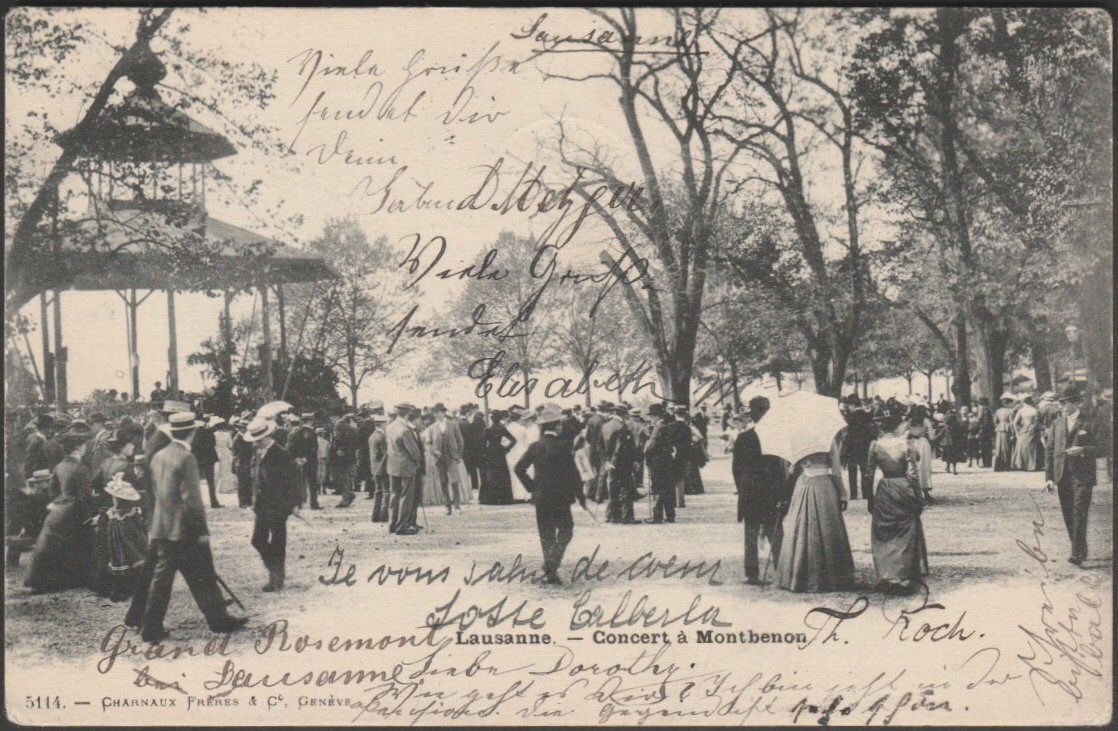 Lausanne
Viele Grüße
sendet Dir
Deine
Gertrud Metzger
Viele Grüße
sendet
Elisabeth
Je vous salue de coeur
Tosse Calberla
Lausanne. — Concert à Montbenon
Th. Koch.
Grand Rosemont
bei Lausanne
Liebe Dorothy.
Wie geht es Dir? Ich bin jetzt in der
Pension. Die Gegend ist sehr schön.
5114. — CHARNAUX FRÈRES & Cº, GENÈVE